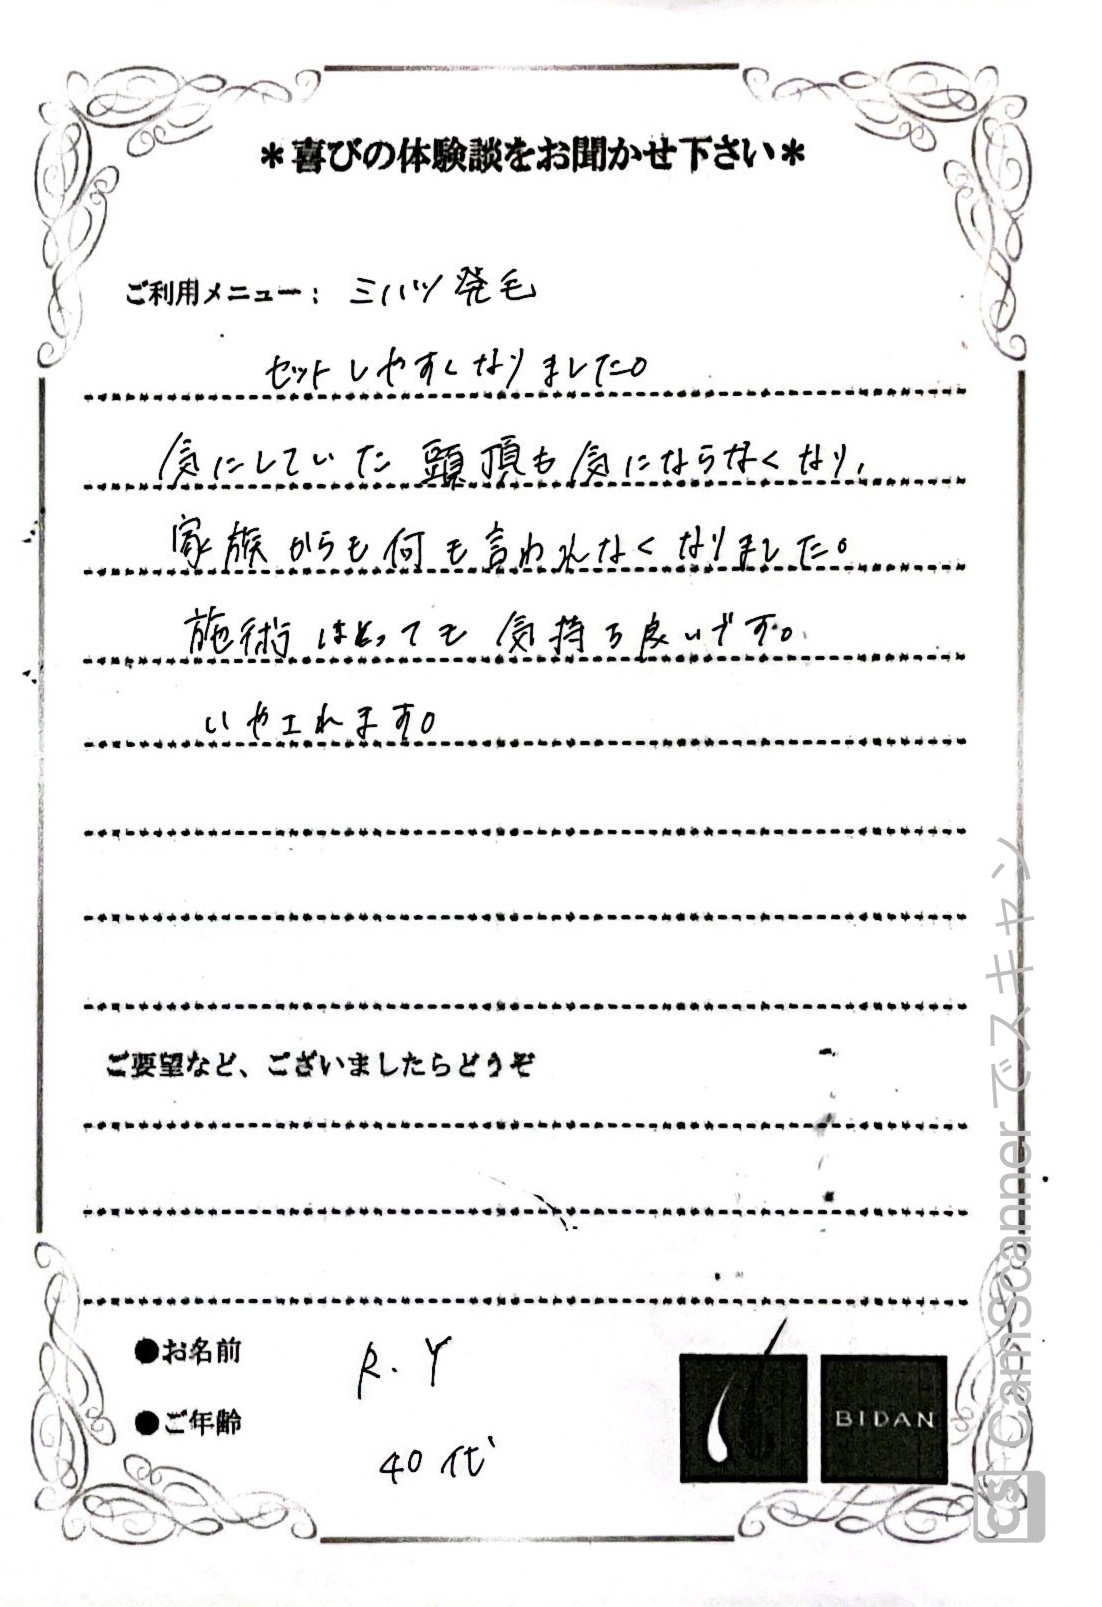 ＊喜びの体験談をお聞かせ下さい＊
ご利用メニュー： ミハツ発毛
セットしやすくなりました。
気にしていた頭頂も気にならなくなり、
家族からも何も言われなくなりました。
施術はとっても気持ち良いです。
いやエれます。
ご要望など、ございましたらどうぞ
●お名前 R.Y
●ご年齢 40代
BIDAN
CS CamScannerでスキャン